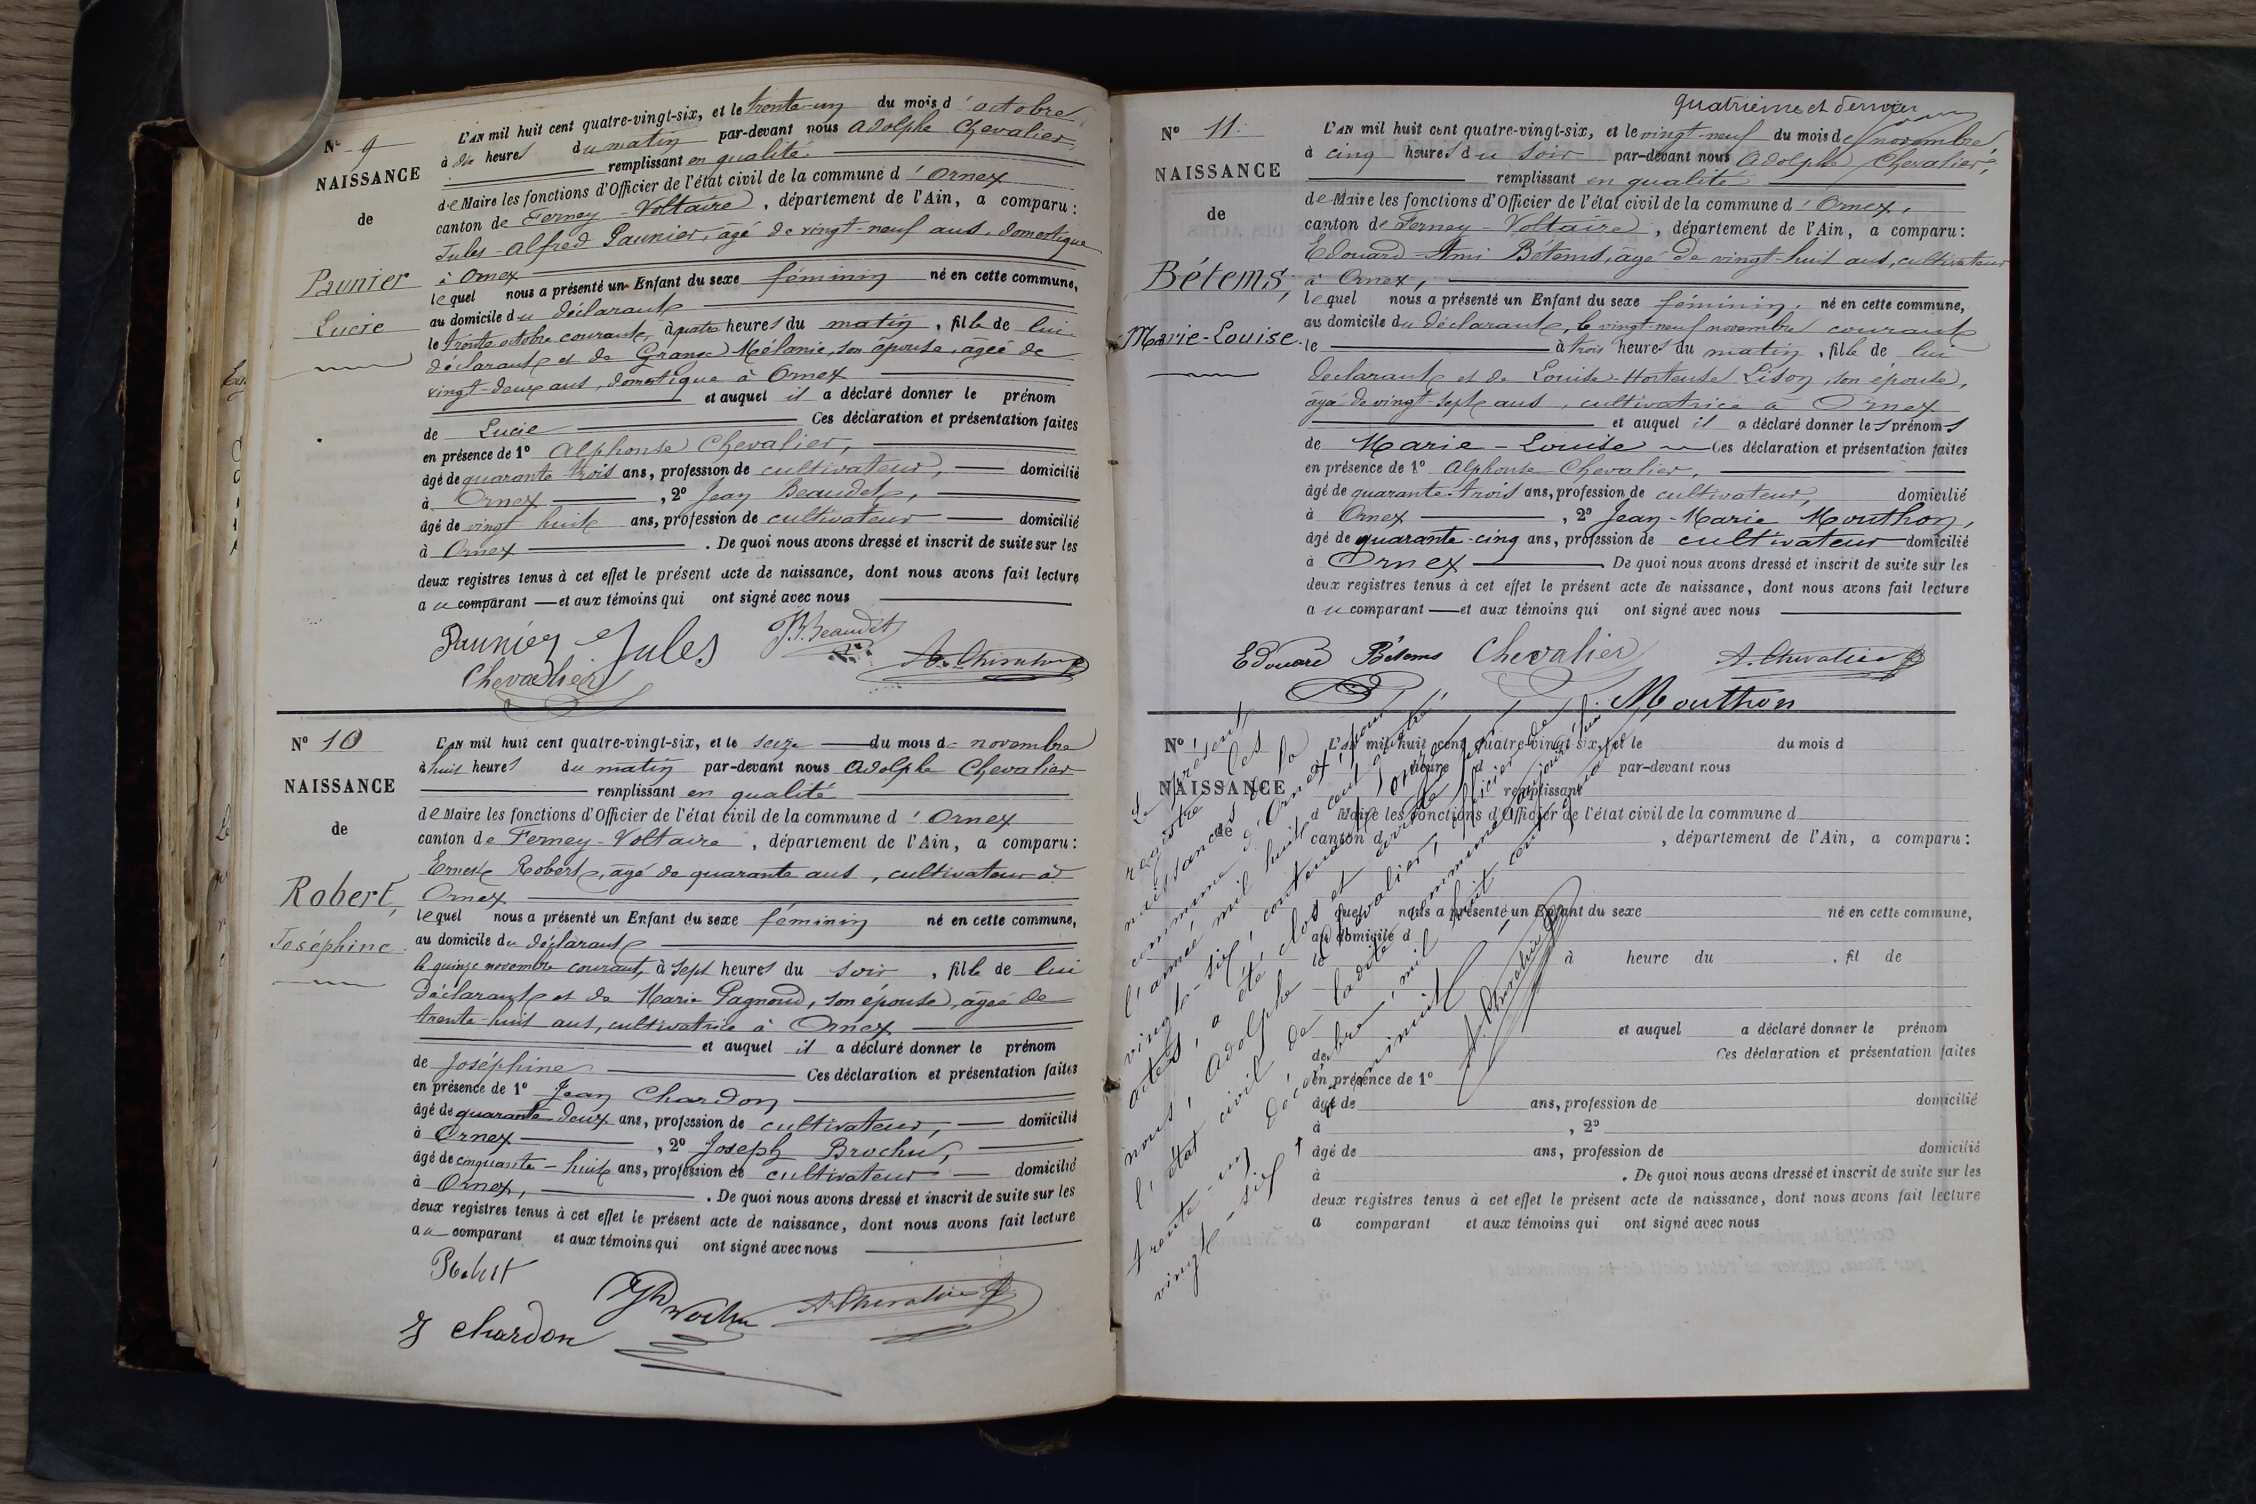 N° 9
NAISSANCE
de
Paunier
Lucie
L'AN mil huit cent quatre-vingt-six, et le trente-un du mois d'octobre,
à dix heures du matin par-devant nous Adolphe Chevalier,
remplissant en qualité
de Maire les fonctions d'Officier de l'état civil de la commune d'Ornex
canton de Ferney-Voltaire, département de l'Ain, a comparu:
Jules-Alfred Paunier, âgé de vingt-neuf ans, domestique
à Ornex
lequel nous a présenté un Enfant du sexe féminin né en cette commune,
au domicile du déclarant
le trente octobre courant, à quatre heures du matin, fille de lui
déclarant et de Mélanie, son épouse, âgée de
vingt-deux ans, domestique à Ornex
et auquel il a déclaré donner le prénom
de Lucie Ces déclaration et présentation faites
en présence de 1° Alphonse Chevalier,
âgé de quarante trois ans, profession de cultivateur, domicilié
à Ornex, 2° Jean Beaudet,
âgé de vingt huit ans, profession de cultivateur domicilié
à Ornex. De quoi nous avons dressé et inscrit de suite sur les
deux registres tenus à cet effet le présent acte de naissance, dont nous avons fait lecture
au comparant et aux témoins qui ont signé avec nous
Paunier Jules J. Beaudet
Chevallier A. Chevalier
N° 10
NAISSANCE
de
Robert,
Joséphine
L'AN mil huit cent quatre-vingt-six, et le seize du mois de novembre
à huit heures du matin par-devant nous Adolphe Chevalier
remplissant en qualité
de Maire les fonctions d'Officier de l'état civil de la commune d'Ornex
canton de Ferney-Voltaire, département de l'Ain, a comparu:
Ernest Robert, âgé de quarante ans, cultivateur à
Ornex
lequel nous a présenté un Enfant du sexe féminin né en cette commune,
au domicile du déclarant
le quinze novembre courant, à sept heures du soir, fille de lui
déclarant et de Marie Pagnoud, son épouse, âgée de
trente-huit ans, cultivatrice à Ornex
et auquel il a déclaré donner le prénom
de Joséphine Ces déclaration et présentation faites
en présence de 1° Jean Chardon
âgé de quarante deux ans, profession de cultivateur, domicilié
à Ornex, 2° Joseph Brochu,
âgé de cinquante-huit ans, profession de cultivateur domicilié
à Ornex, . De quoi nous avons dressé et inscrit de suite sur les
deux registres tenus à cet effet le présent acte de naissance, dont nous avons fait lecture
au comparant et aux témoins qui ont signé avec nous
Robert
J Chardon A. Chevalier
quatrième et dernier
N° 11.
NAISSANCE
de
Bétems,
Marie-Louise.
L'AN mil huit cent quatre-vingt-six, et le vingt-neuf du mois de novembre,
à cinq heures du soir par-devant nous Adolphe Chevalier,
remplissant en qualité
de Maire les fonctions d'Officier de l'état civil de la commune d'Ornex,
canton de Ferney-Voltaire, département de l'Ain, a comparu:
Edouard-Ami Bétems, âgé de vingt-huit ans, cultivateur
à Ornex,
lequel nous a présenté un Enfant du sexe féminin, né en cette commune,
au domicile du déclarant, le vingt-neuf novembre courant
le à trois heures du matin, fille de lui
déclarant et de Louise-Hortense Lison, son épouse,
âgée de vingt-sept ans, cultivatrice à Ornex
et auquel il a déclaré donner les prénoms
de Marie-Louise Ces déclaration et présentation faites
en présence de 1° Alphonse Chevalier,
âgé de quarante-trois ans, profession de cultivateur, domicilié
à Ornex, 2° Jean-Marie Mouthon,
âgé de quarante-cinq ans, profession de cultivateur domicilié
à Ornex De quoi nous avons dressé et inscrit de suite sur les
deux registres tenus à cet effet le présent acte de naissance, dont nous avons fait lecture
au comparant et aux témoins qui ont signé avec nous
Edouard Bétems Chevalier A. Chevalier
Mouthon
N°
NAISSANCE
de
L'AN mil huit cent quatre-vingt-six, et le du mois d
heure d par-devant nous
remplissant
d Maire les fonctions d'Officier de l'état civil de la commune d
canton d , département de l'Ain, a comparu:
quel nous a présenté un Enfant du sexe né en cette commune,
au domicile d
le à heure du , fil de
et auquel a déclaré donner le prénom
de Ces déclaration et présentation faites
en présence de 1°
âgé de ans, profession de domicilié
à , 2°
âgé de ans, profession de domicilié
à . De quoi nous avons dressé et inscrit de suite sur les
deux registres tenus à cet effet le présent acte de naissance, dont nous avons fait lecture
a comparant et aux témoins qui ont signé avec nous
Le présent
registre des
naissances de la
commune d'Ornex, pour
l'année mil huit cent quatre
vingt-six, contenant onze
actes, a été clos et arrêté par
nous, Adolphe Chevalier, officier de
l'état civil de ladite commune, aujourd'hui
trente-un décembre, mil huit cent quatre
vingt-six, à minuit
A. Chevalier